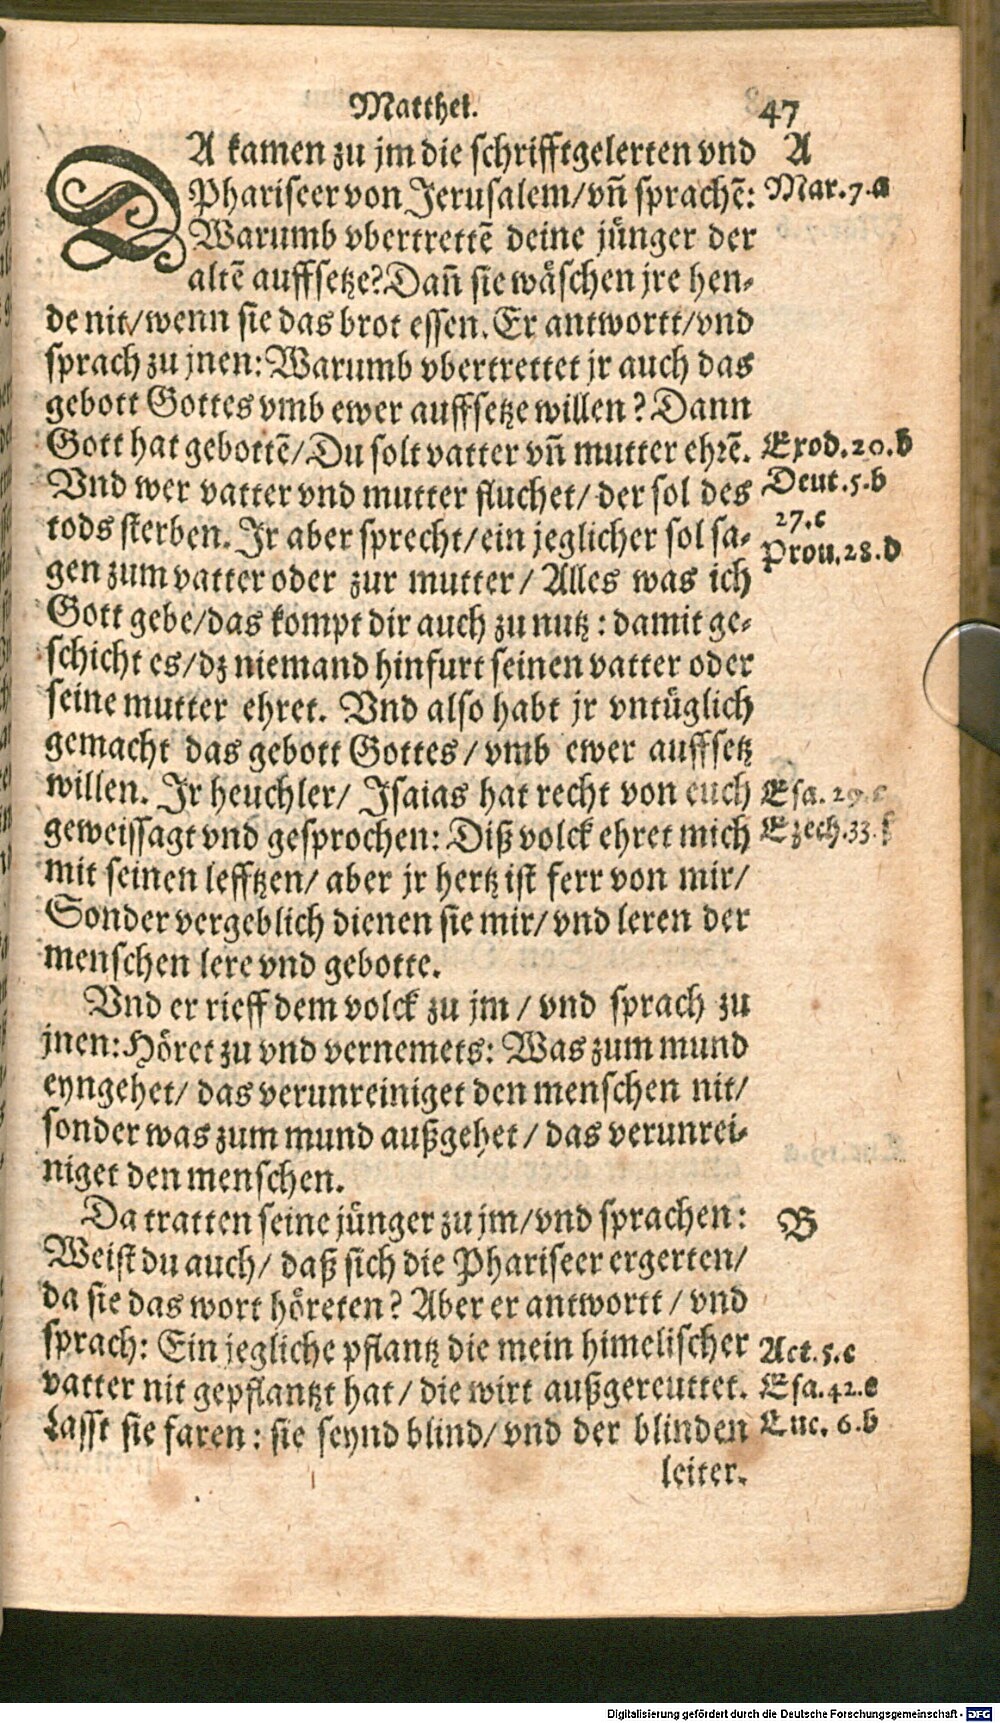 Matthei. 47
DA kamen zu jm die schrifftgelerten vnd A
Phariseer von Jerusalem/vn̄ sprachē: Mar.7.a
Warumb vbertrettē deine jünger der
altē auffsetze? Dan̄ sie wäschen jre hen⸗
de nit/wenn sie das brot essen. Er antwortt/vnd
sprach zu jnen: Warumb vbertrettet jr auch das
gebott Gottes vmb ewer auffsetze willen? Dann
Gott hat gebottē/Du solt vatter vn̄ mutter ehrē. Exod.20.b
Vnd wer vatter vnd mutter fluchet/der sol des Deut.5.b
tods sterben. Jr aber sprecht/ein jeglicher sol sa⸗ 27.c
gen zum vatter oder zur mutter/Alles was ich Prou.28.d
Gott gebe/das kompt dir auch zu nutz: damit ge⸗
schicht es/dz niemand hinfurt seinen vatter oder
seine mutter ehret. Vnd also habt jr vntüglich
gemacht das gebott Gottes/vmb ewer auffsetz
willen. Jr heuchler/ Jsaias hat recht von euch Esa.29.c
geweissagt vnd gesprochen: Diß volck ehret mich Ezech.33.f
mit seinen lefftzen/ aber jr hertz ist ferr von mir/
Sonder vergeblich dienen sie mir/vnd leren der
menschen lere vnd gebotte.
Vnd er rieff dem volck zu jm/vnd sprach zu
jnen: Höret zu vnd vernemets: Was zum mund
eyngehet/ das verunreiniget den menschen nit/
sonder was zum mund außgehet/das verunrei⸗
niget den menschen.
Da tratten seine jünger zu jm/vnd sprachen: B
Weist du auch/ daß sich die Phariseer ergerten/
da sie das wort höreten? Aber er antwortt/vnd
sprach: Ein jegliche pflantz die mein himelischer Act.5.c
vatter nit gepflantzt hat/die wirt außgereuttet. Esa.42.e
Lasst sie faren: sie seynd blind/vnd der blinden Luc. 6.b
leiter.
Digitalisierung gefördert durch die Deutsche Forschungsgemeinschaft - DFG